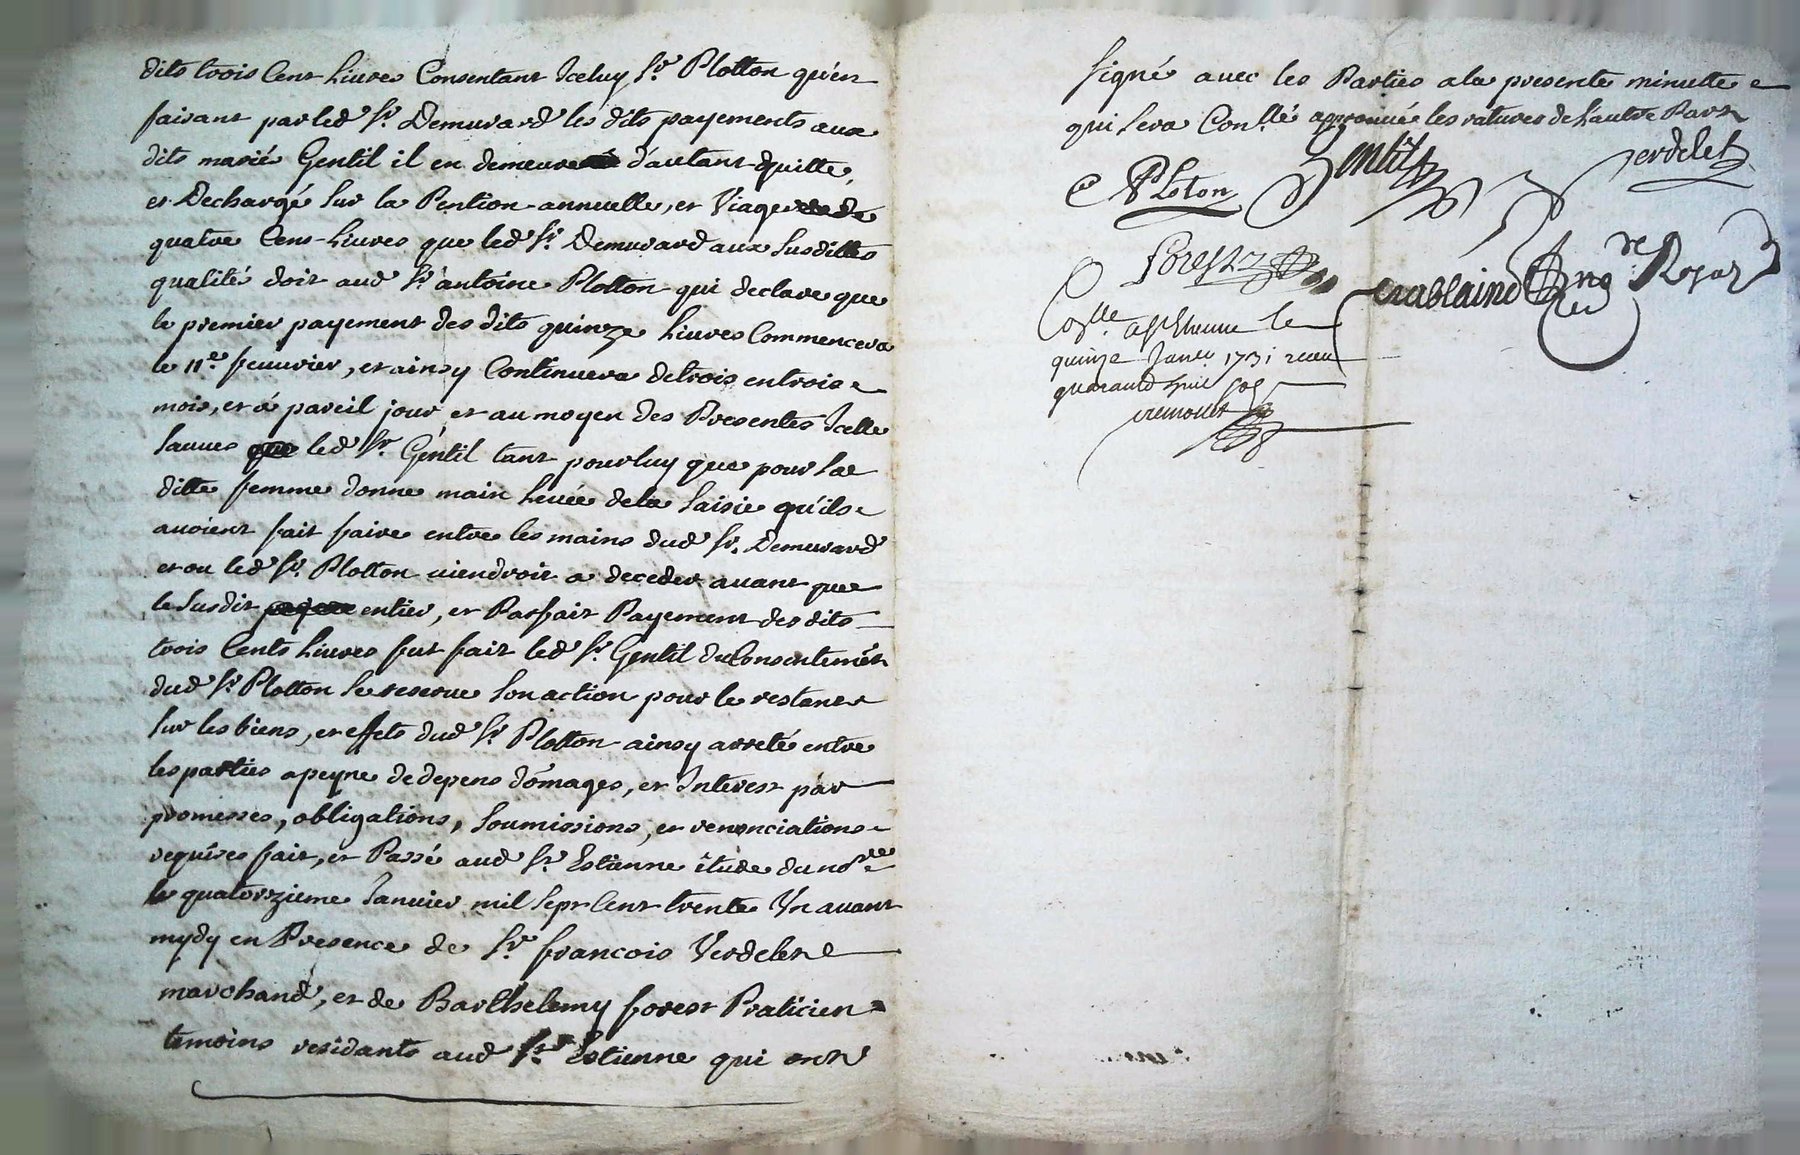 dits trois Cent Livres Consentant Iceluy Sr. Plotton qu'en
faisant par led Sr. Demurard les dits payements aux
dits mariés Gentil il en demeure d'autant quitte,
et Dechargé sur la Pention annuelle, et Viagere de
quatre Cens Livres que led Sr. Demurard aux susdittes
qualités doit aud Sr. antoine Plotton qui declare que
le premier payement des dits quinze Livres Commencera
le 11e. fevrier, et ainsy Continuera de trois en trois
mois, et à pareil jour, et au moyen des Presentes Icelle
sauves led Sr. Gentil tant pour luy que pour sa
ditte femme donne main levée de la saisie qu'ils
avoient fait faire entre les mains dud Sr. Demurard
et ou led Sr. Plotton viendroit a deceder avant que
le susdit entier, et Parfait Payement des dits
trois Cents Livres fut fait led Sr. Gentil du Consentemen
dud Sr. Plotton se reserve son action pour le restant
sur les biens, et effets dud Sr. Plotton ainsy arreté entre
les parties a peyne de depens domages, et Interest par
promesses, obligations, soumissions, et renonciations
requises fait, et Passé aud St. Estienne étude du nore
le quatorzieme Janvier mil sept Cent trente Un avant
mydy en Presence de Sr. françois Verdelet
marchand, et de Barthelemy forest Praticien
temoins residants aud St. Estienne qui ont
signé avec les Parties a la presente minutte
qui sera Conllé approuvée les ratures de L'autre Part
Plotton Gentil Verdelet
Forest Crablaine nore Royal
Conllé a St Etienne le
quinze Janer 1731 receu
quarante huit sols